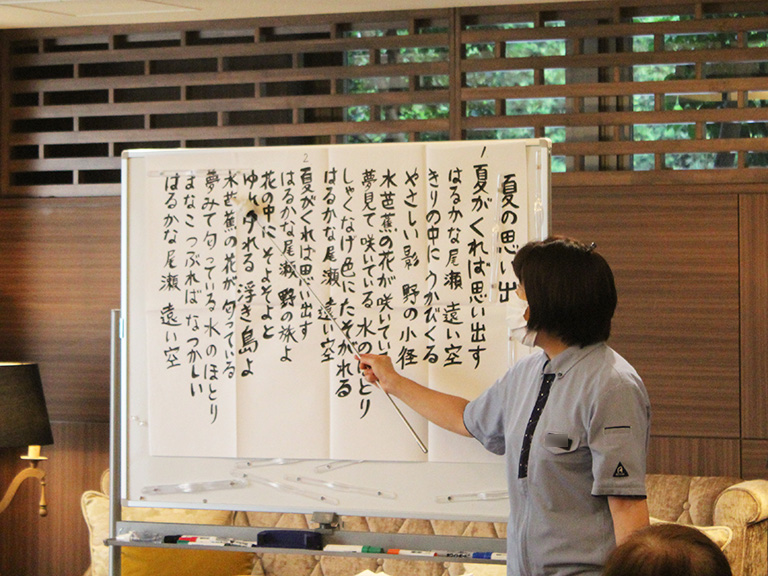 夏の思い出
1
夏がくれば思い出す
はるかな尾瀬 遠い空
きりの中に うかびくる
やさしい影 野の小径
水芭蕉の花が 咲いてい
夢見て咲いている 水のほとり
しゃくなげ色にたそがれる
はるかな尾瀬 遠い空
2
夏がくれば思い出す
はるかな尾瀬 野の旅よ
花の中に そよそよと
ゆれゆれる 浮き島よ
水芭蕉の花が 匂っている
夢みて匂っている 水のほとり
まなこつぶれば なつかしい
はるかな尾瀬 遠い空